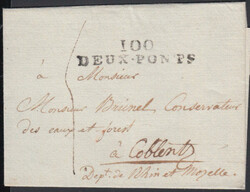 100
DEUX-PONTS
à Monsieur
Monsieur Brünel Conservateur
des eaux et forest
à Coblentz
Dept. de Rhin et Mozelle.